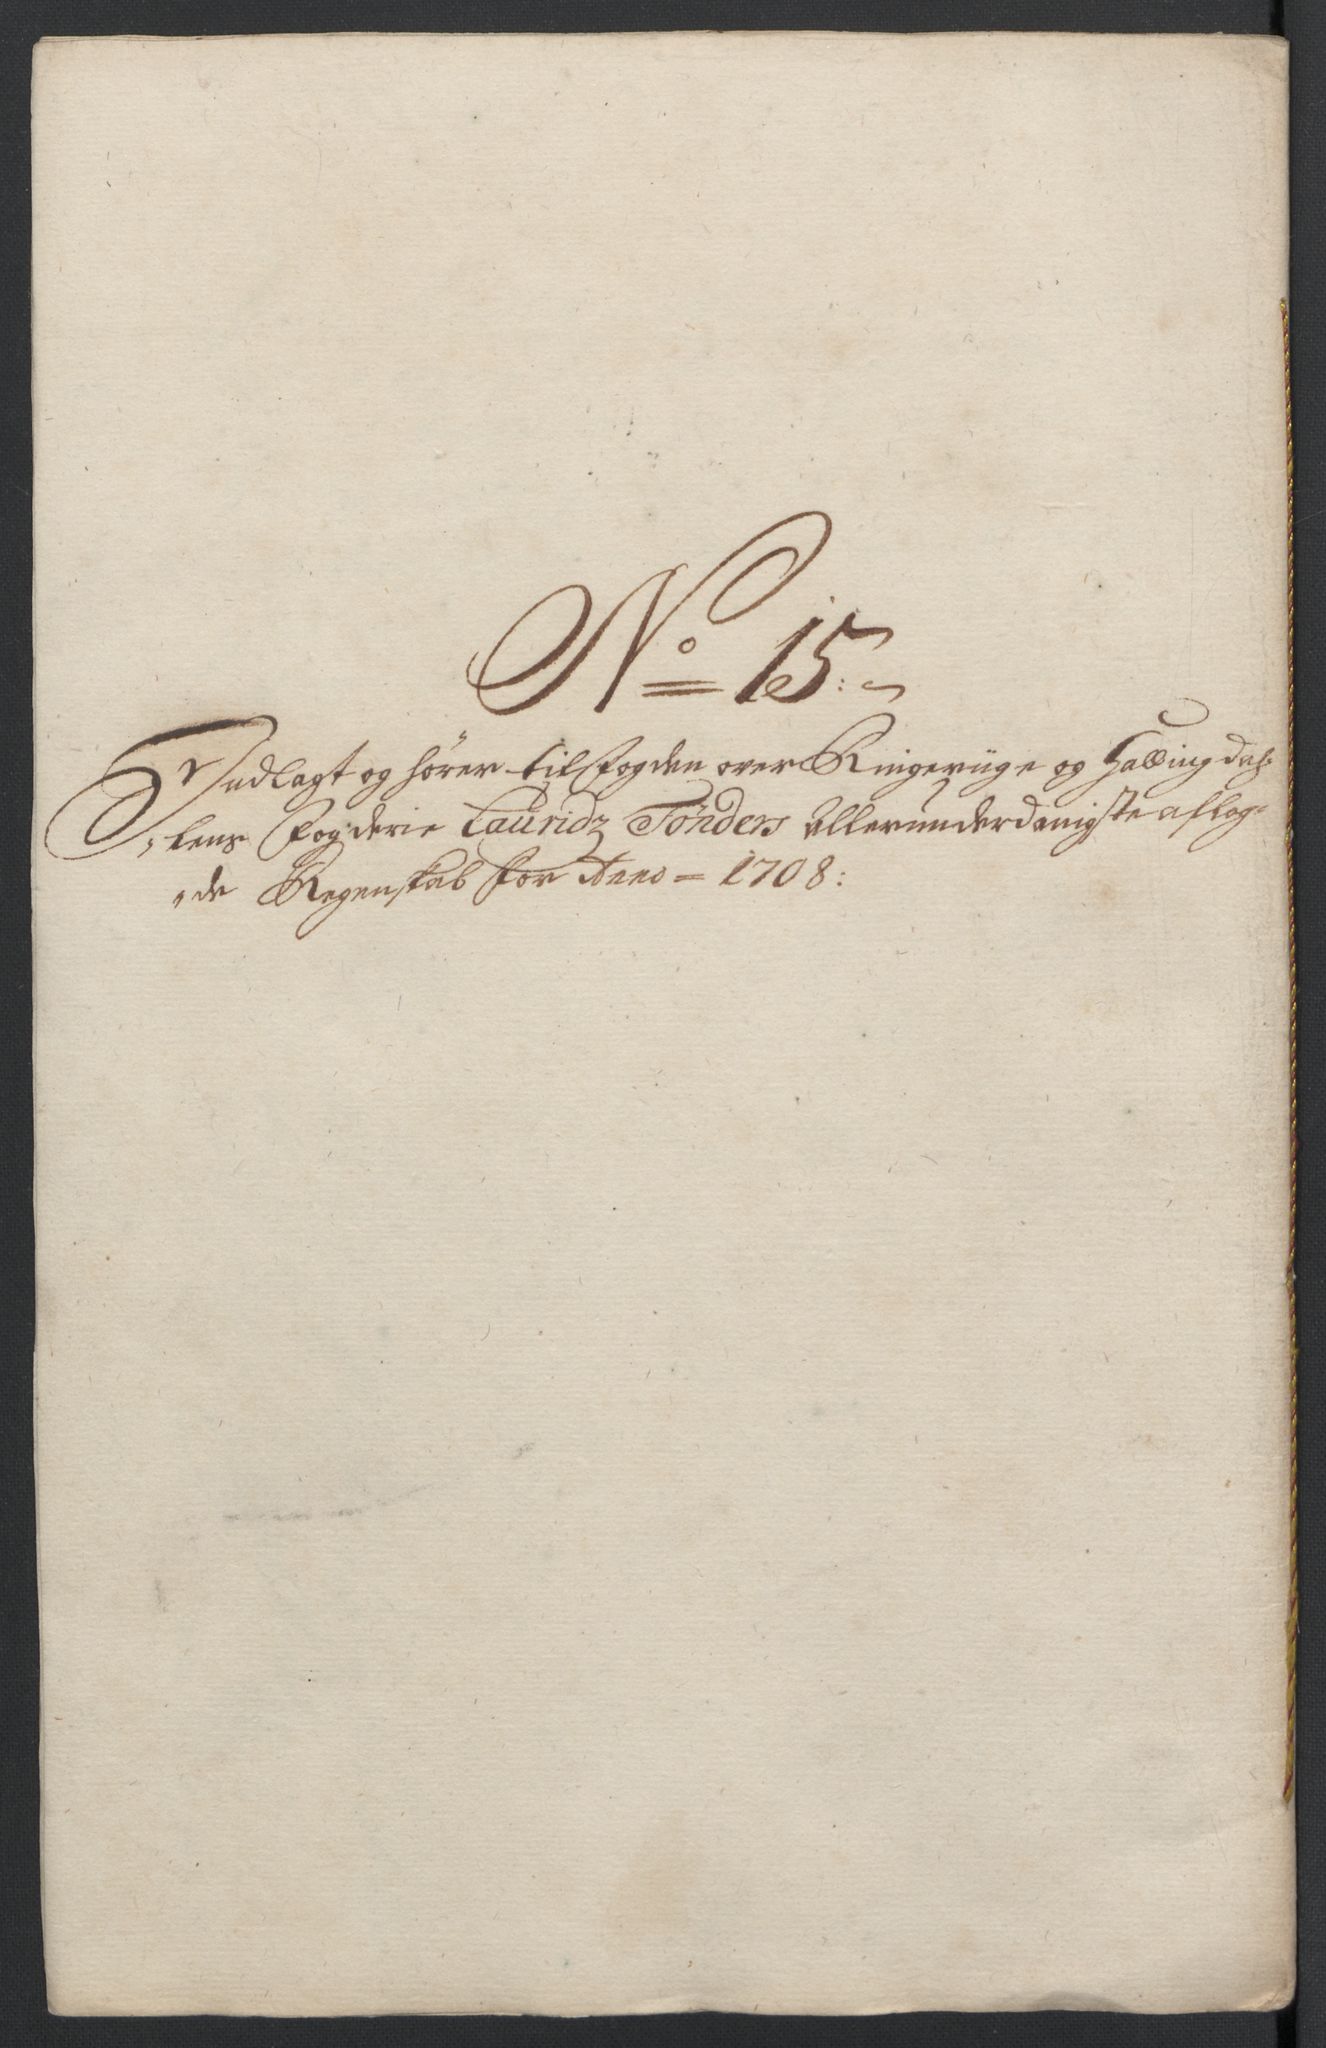 No 15:
Indlagt og hører til Fogden over Ringerüge og Halling dah=
lens Fogderie Lauridz Tønders allerunderdanigste aflag=
de Regenskab for Anno = 1708: